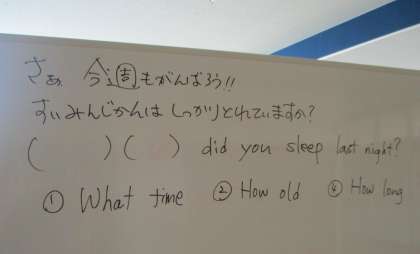 さぁ 今週もがんばろう!!
すいみんじかんは しっかりとれていますか?
(     )(     ) did you sleep last night?
① What time ② How old ④ How long